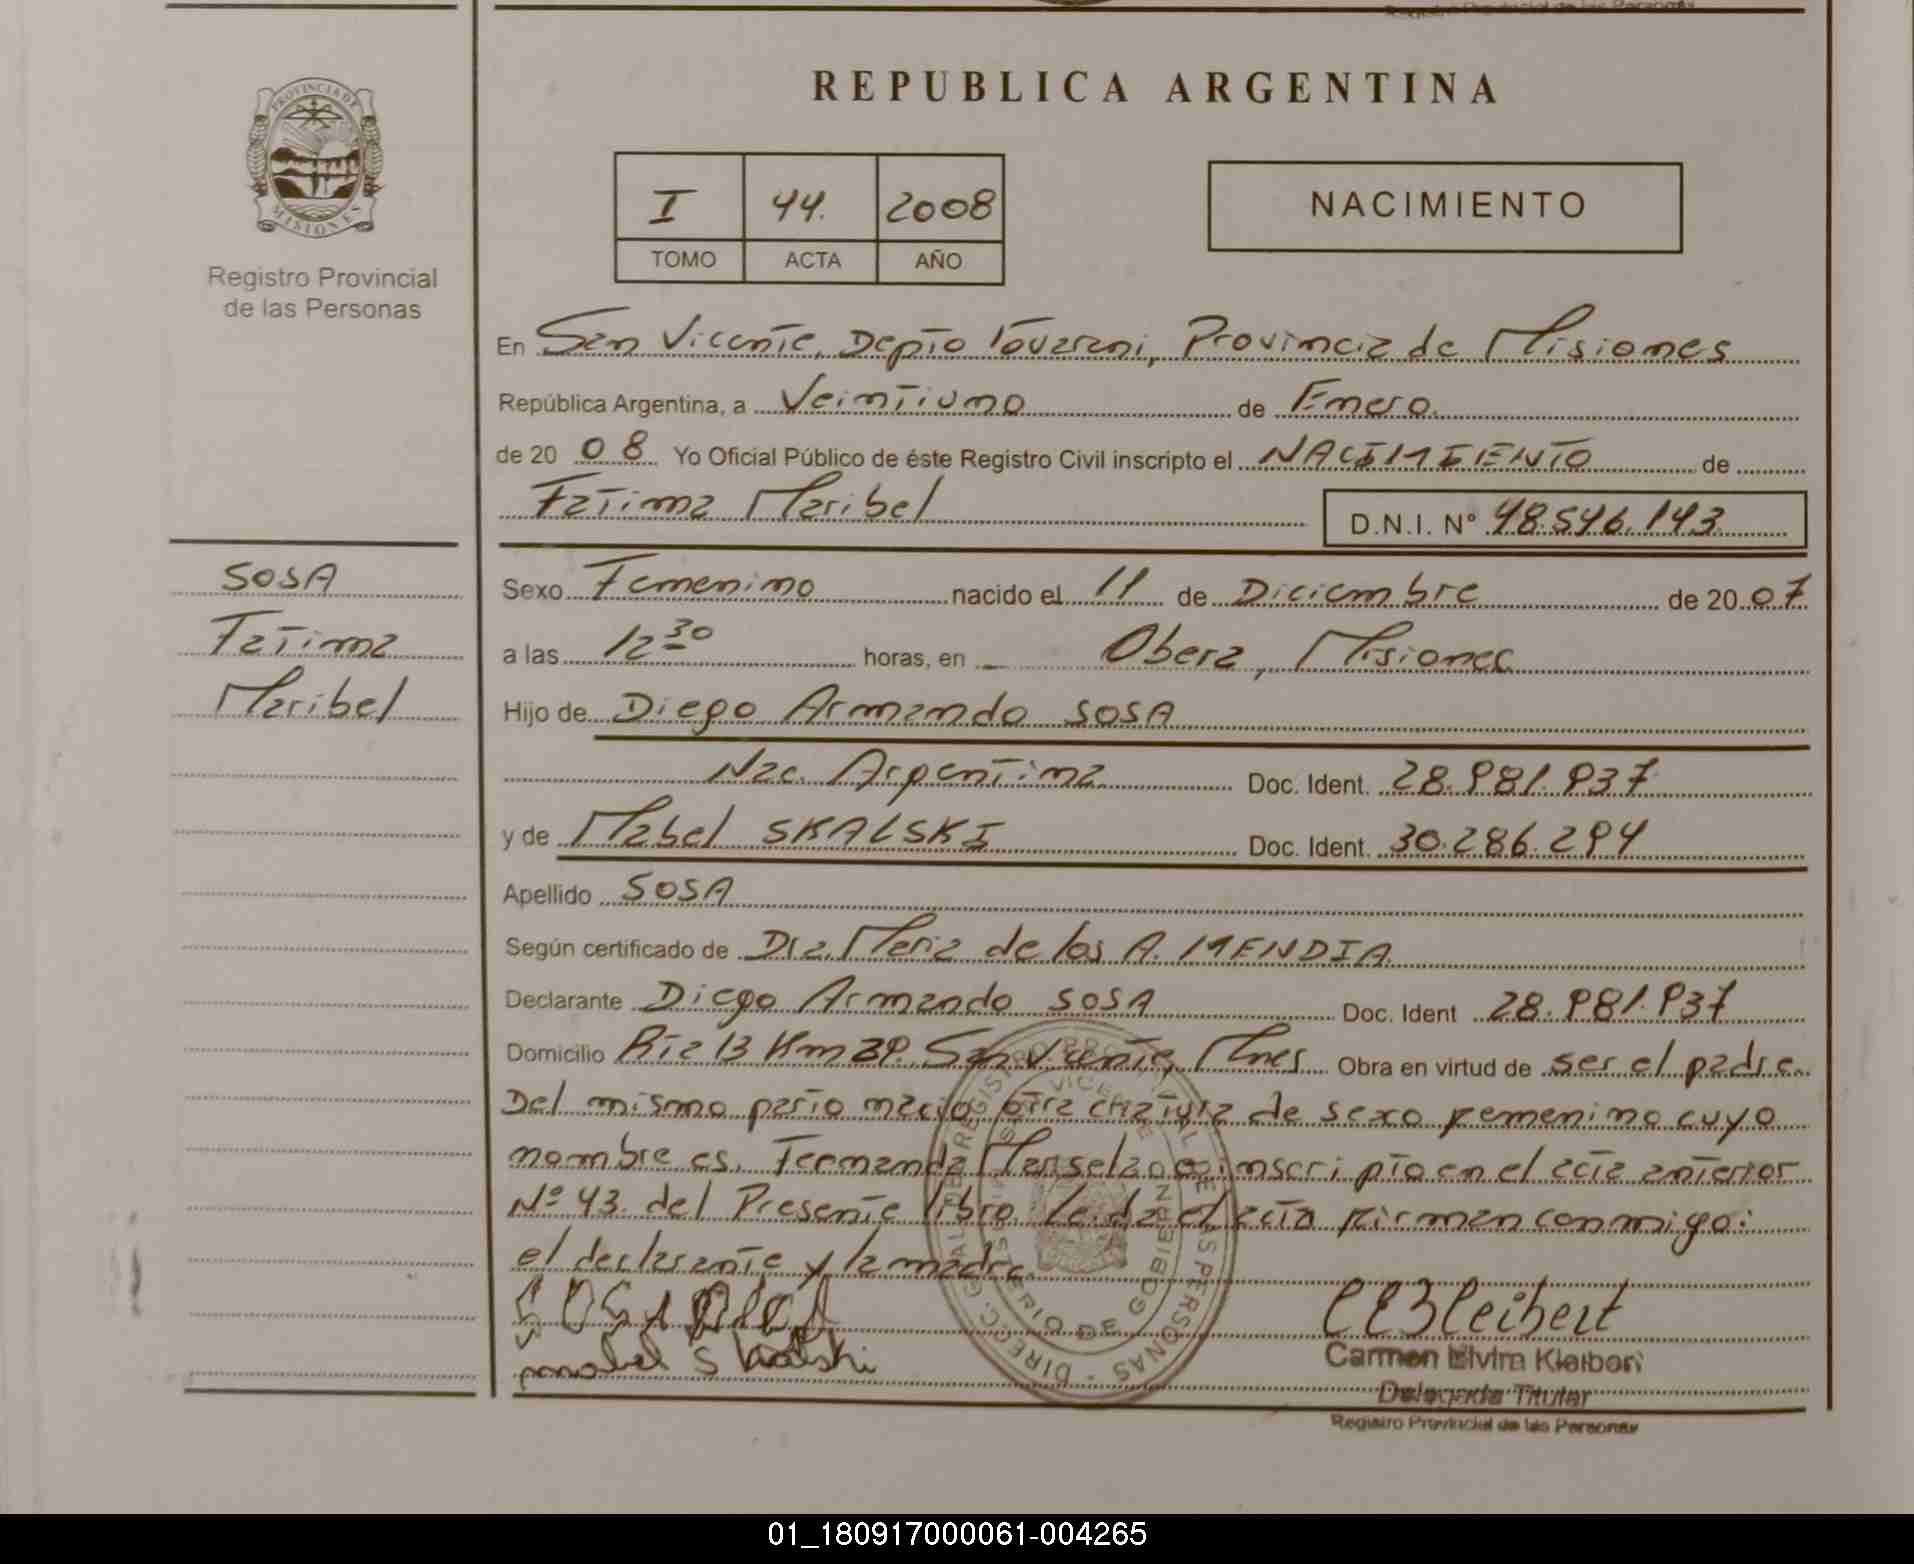 Registro Provincial de las Personas
REPUBLICA ARGENTINA
PROVINCIA DE
MISIONES
Registro Provincial
de las Personas
I 44. 2008
TOMO ACTA AÑO
NACIMIENTO
En San Vicente, Depto Guarani, Provincia de Misiones
República Argentina, a Veintiuno de Enero.
de 20 08 Yo Oficial Público de éste Registro Civil inscripto el NACIMIENTO de
Fatima Maribel D.N.I. N° 48.546.143
SOSA
Fatima
Maribel
Sexo Femenino nacido el 11 de Diciembre de 20 07
a las 12 30 horas, en Obera, Misiones
Hijo de Diego Armando SOSA
Nac. Argentina Doc. Ident. 28.981.937
y de Mabel SKALSKI Doc. Ident. 30.286.294
Apellido SOSA
Según certificado de Dra. Maria de los A. MENDIA
Declarante Diego Armando SOSA Doc. Ident 28.981.937
Domicilio Rta 13 Km 39. San Vicente, Mnes Obra en virtud de ser el padre.
Del mismo parto nacio otra criatura de sexo femenino cuyo
nombre es. Fernanda inscripto en el acta anterior
Nº 43. del Presente libro. Leida el acta firman conmigo:
el declarante y la madre.
SOSA
mabel Skalski
Carmen Elvira Kleibert
Delegada Titular
Registro Provincial de las Personas
DIRECC. GRAL. DE REGISTRO PROVINCIAL DE LAS PERSONAS
SAN VICENTE
MINISTERIO DE GOBIERNO
01_180917000061-004265